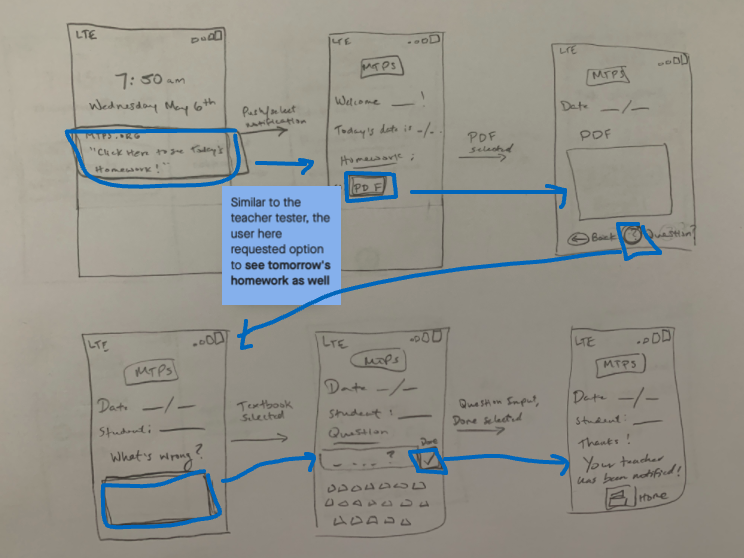 LTE
7:50 am
Wednesday May 6th
MTPS.ORG
"Click Here to see Today's
Homework!"
Push/select
notification
LTE
MTPS
Welcome ___!
Today's date is -/-.
Homework:
PDF
PDF
selected
LTE
MTPS
Date _/_
PDF
Back ? Question?
Similar to the
teacher tester, the
user here
requested option
to see tomorrow's
homework as well
LTE
MTPS
Date _/_
Student: ___
What's wrong?
Textbook
Selected
LTE
MTPS
Date _/_
Student: ___
Question
Done
_ _ _ _ ?
Question Input,
Done selected
LTE
MTPS
Date _/_
Student: ___
Thanks!
Your teacher
has been notified!
Home